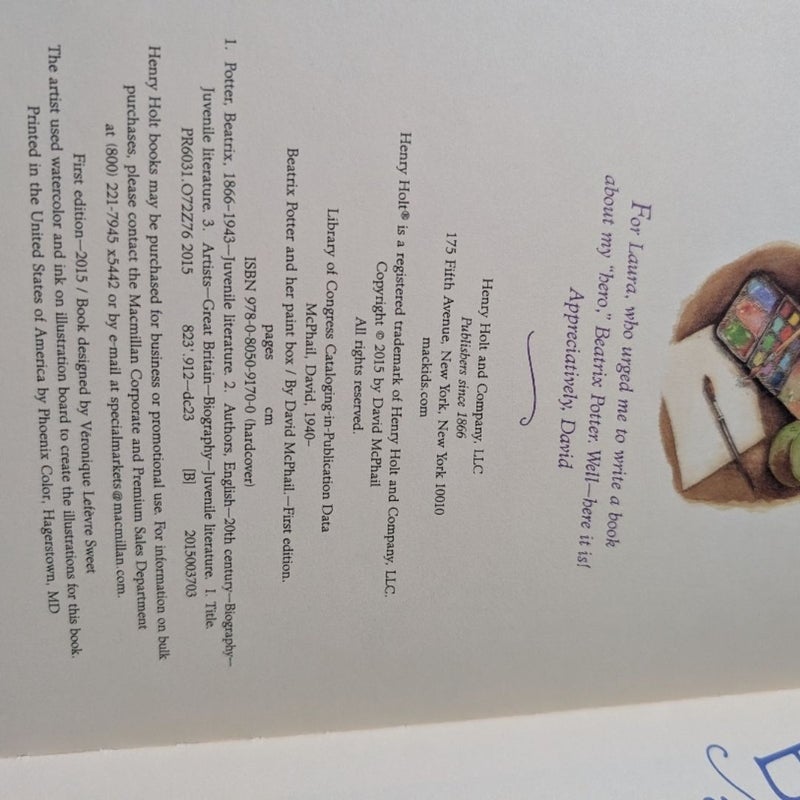 For Laura, who urged me to write a book
about my "hero," Beatrix Potter. Well—here it is!
Appreciatively, David
Henry Holt and Company, LLC
Publishers since 1866
175 Fifth Avenue, New York, New York 10010
mackids.com
Henry Holt® is a registered trademark of Henry Holt and Company, LLC.
Copyright © 2015 by David McPhail
All rights reserved.
Library of Congress Cataloging-in-Publication Data
McPhail, David, 1940–
Beatrix Potter and her paint box / By David McPhail.—First edition.
pages cm
ISBN 978-0-8050-9170-0 (hardcover)
1. Potter, Beatrix, 1866–1943—Juvenile literature. 2. Authors, English—20th century—Biography—
Juvenile literature. 3. Artists—Great Britain—Biography—Juvenile literature. I. Title.
PR6031.O72Z76 2015 823'.912—dc23 [B] 2015003703
Henry Holt books may be purchased for business or promotional use. For information on bulk
purchases, please contact the Macmillan Corporate and Premium Sales Department
at (800) 221-7945 x5442 or by e-mail at specialmarkets@macmillan.com.
First edition—2015 / Book designed by Véronique Lefèvre Sweet
The artist used watercolor and ink on illustration board to create the illustrations for this book.
Printed in the United States of America by Phoenix Color, Hagerstown, MD